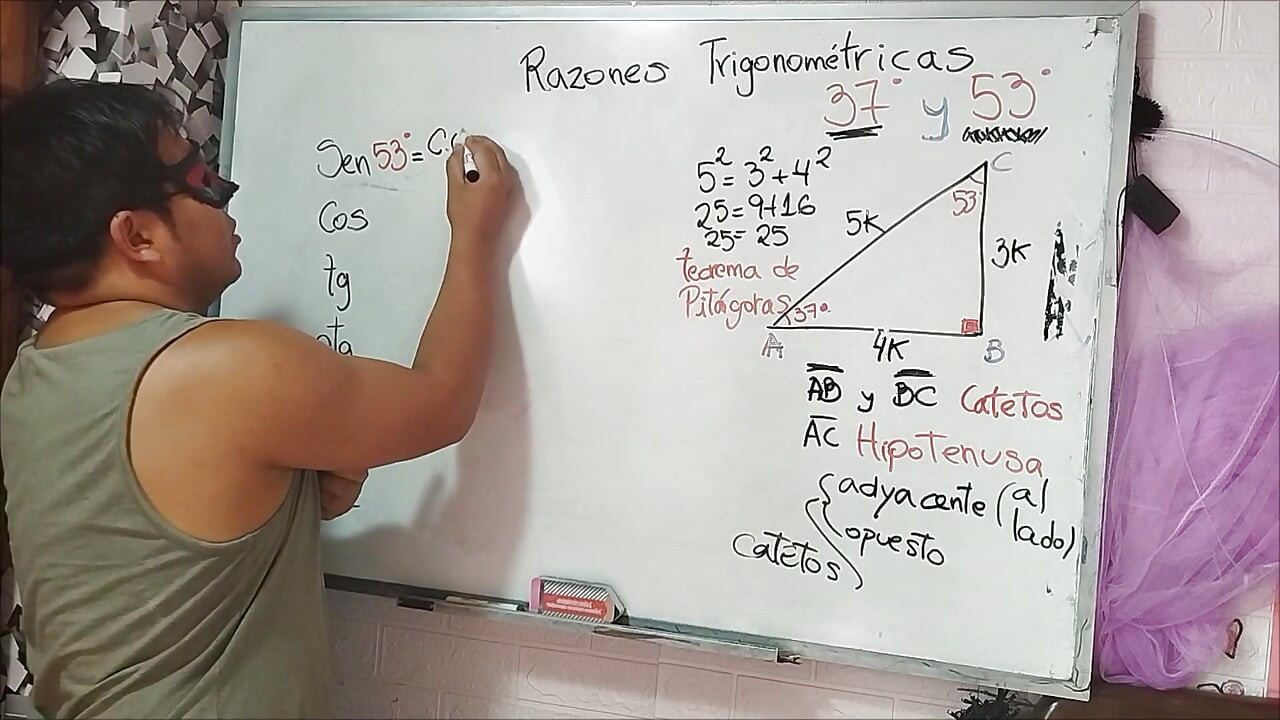 Razones Trigonométricas
37° y 53°
Sen 53° = C.
Cos
tg
5² = 3² + 4²
25 = 9+16
25 = 25
teorema de
Pitágoras
C
53°
5K
3K
37°
A
4K
B
AB y BC Catetos
AC Hipotenusa
Catetos
adyacente (al lado)
opuesto